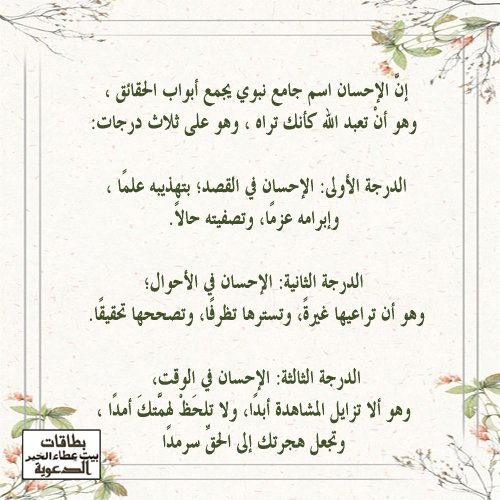 إنَّ الإحسان اسم جامع نبوي يجمع أبواب الحقائق ،
وهو أنْ تعبد الله كأنك تراه ، وهو على ثلاث درجات:
الدرجة الأولى: الإحسان في القصد؛ بتهذيبه علمًا ،
وإبرامه عزمًا، وتصفيته حالاً.
الدرجة الثانية: الإحسان في الأحوال؛
وهو أن تراعيها غيرةً، وتسترها تظرفًا، وتصححها تحقيقًا.
الدرجة الثالثة: الإحسان في الوقت،
وهو ألا تزايل المشاهدة أبدًا، ولا تلحَظْ لهمَّتكَ أمدًا ،
وتجعل هجرتك إلى الحقِّ سرمدًا
بطاقات
بيت عطاء الخير
الدعوية